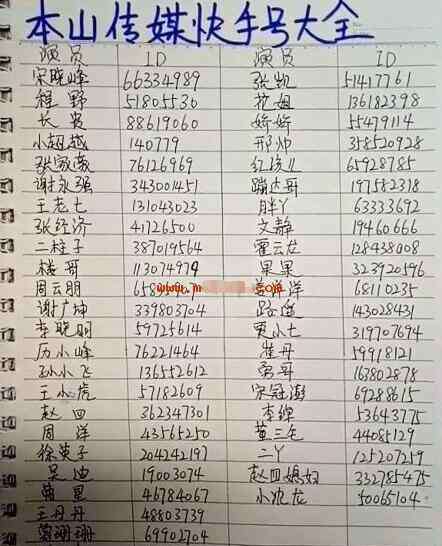 本山传媒快手号大全
演员 ID 演员 ID
宋晓峰 66334989 张凯 51417761
程野 51805530 拉姐 136182398
长贵 88619060 娇娇 55479114
小超越 140779 邢帅 358520928
张 76126969 红孩儿 65928785
谢永强 343001451 蹦达哥 197582318
王老七 131043023 胖丫 63333692
张经济 41726500 文静 19460666
二柱子 387019564 霍云龙 128438008
楼哥 113074979 果果 323920596
周云朋 姜洋洋 68110235
谢广坤 339803704 路遥 143028431
李晓明 59725614 贾小七 319707694
历小峰 76221464 崔丹 59918121
孙小飞 136552612 萌哥 163802878
王小虎 57182609 宋冠澎 69288615
赵四 362347301 李维 53643775
周洋 43565250 黄三毛 44085129
徐英子 204242197 二丫 125207259
吴迪 19003074 赵四媳妇 332785475
萌星 46784067 小沈龙 50065104
王丹丹 48803739
珊珊 69902704